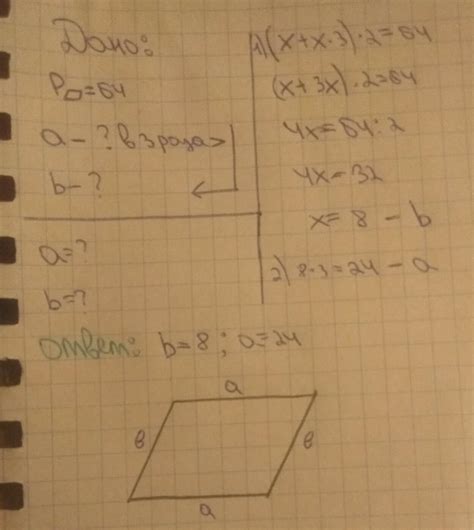 Дано:
P▱=64
a - ? в 3 раза >
b - ?
a = ?
b = ?
1) (x+x·3)·2=64
(x+3x)·2=64
4x=64:2
4x=32
x= 8 - b
2) 8·3=24 - a
Ответ: b=8; a=24
a
в
в
a